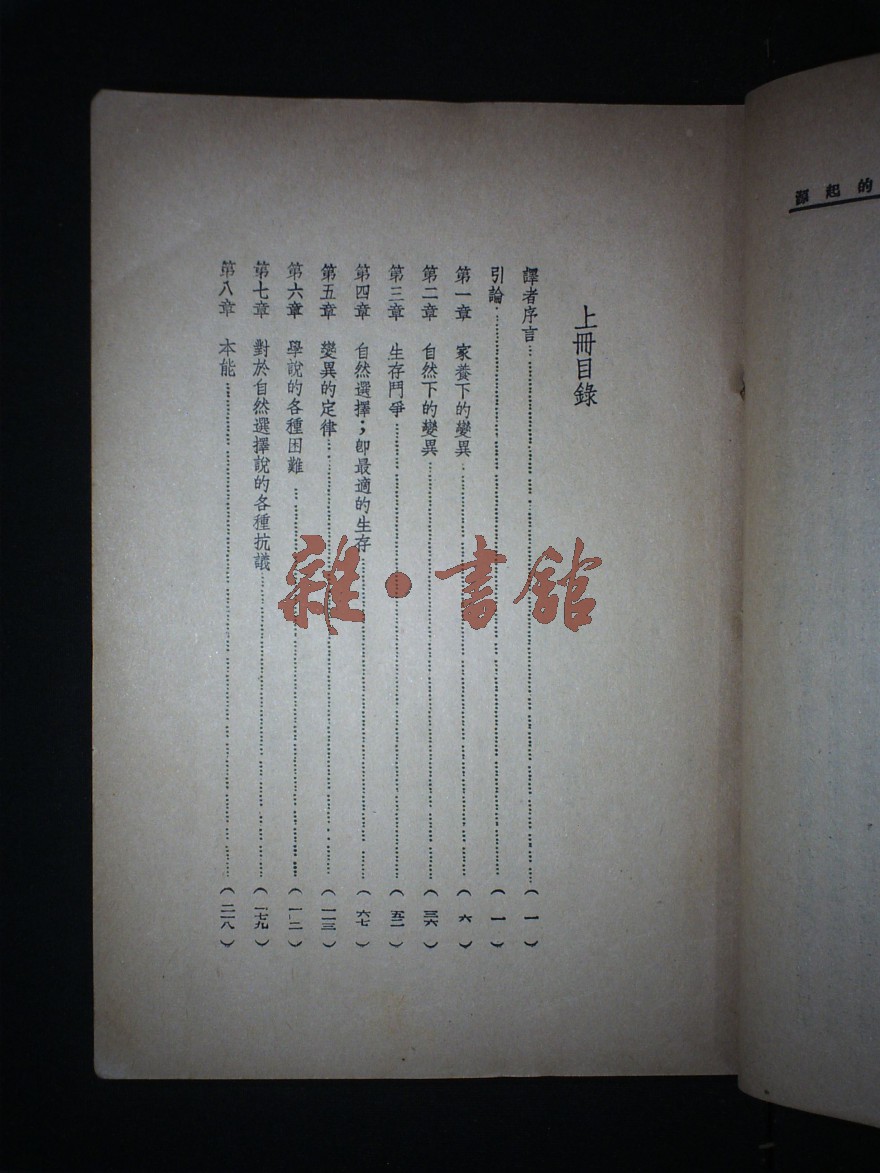 的起源
上冊目錄
譯者序言………(一)
引論………(一)
第一章 家養下的變異………(六)
第二章 自然下的變異………(三六)
第三章 生存鬥爭………(五二)
第四章 自然選擇;卽最適的生存………(六七)
第五章 變異的定律………(一二三)
第六章 學說的各種困難………
第七章 對於自然選擇說的各種抗議………(一七九)
第八章 本能………(二一八)
雜·書館